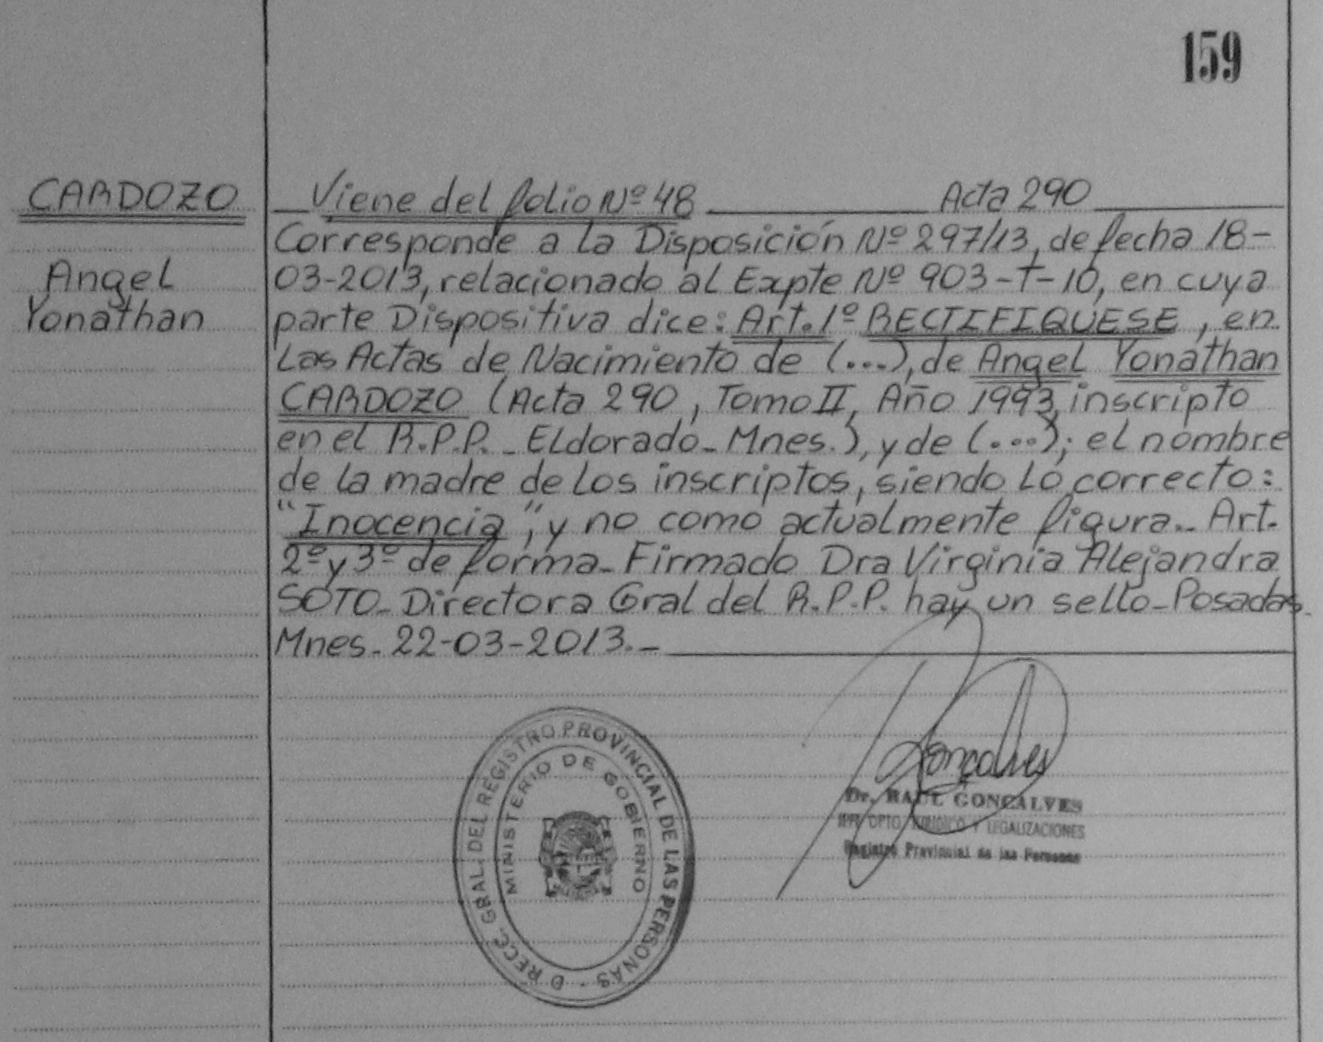 159
CARDOZO
Angel
Yonathan
Viene del folio Nº 48 Acta 290
Corresponde a la Disposición Nº 297/13, de fecha 18-
03-2013, relacionado al Expte Nº 903-T-10, en cuya
parte Dispositiva dice: Art. 1º RECTIFIQUESE, en
las Actas de Nacimiento de (...), de Angel Yonathan
CARDOZO (Acta 290, Tomo II, Año 1993 inscripto
en el R.P.P. - Eldorado - Mnes.), y de (...); el nombre
de la madre de los inscriptos, siendo lo correcto:
"Inocencia", y no como actualmente figura.- Art.
2º y 3º de forma - Firmado Dra Virginia Alejandra
SOTO - Directora Gral del R.P.P. hay un sello - Posadas
Mnes. 22-03-2013.-
DIRECC. GRAL. DEL REGISTRO PROVINCIAL DE LAS PERSONAS
MINISTERIO DE GOBIERNO
Gonçalves
Dr. RAUL GONCALVES
DPTO. JURIDICO Y LEGALIZACIONES
Registro Provincial de las Personas